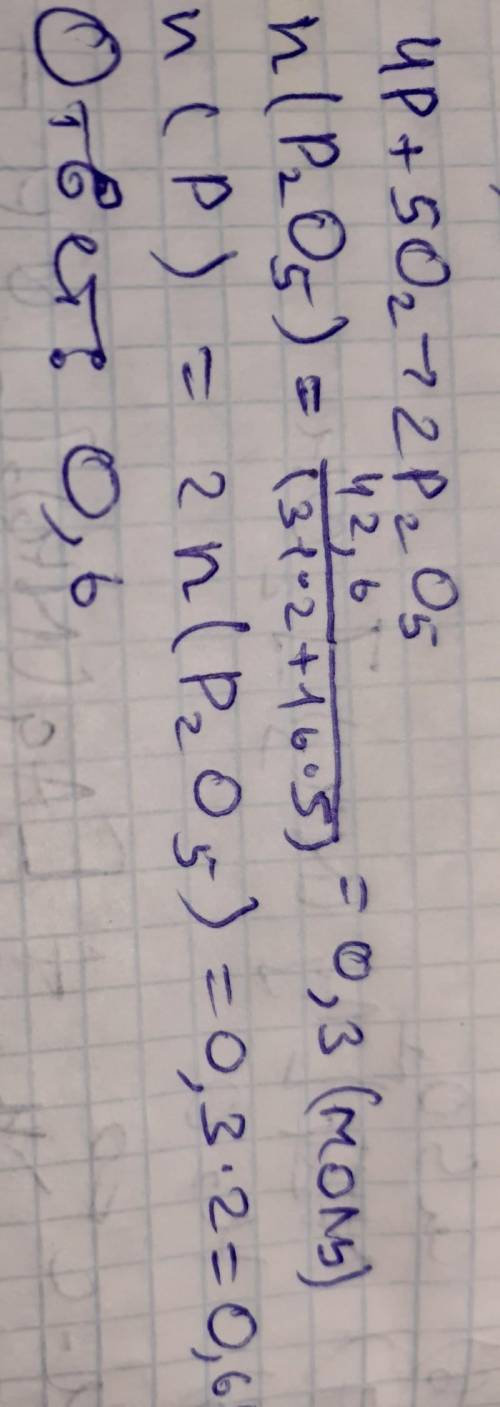 4P + 5O₂ → 2P₂O₅
n(P₂O₅) = 42,6 / (31·2 + 16·5) = 0,3 (моль)
n(P) = 2n(P₂O₅) = 0,3·2 = 0,6
Ответ: 0,6